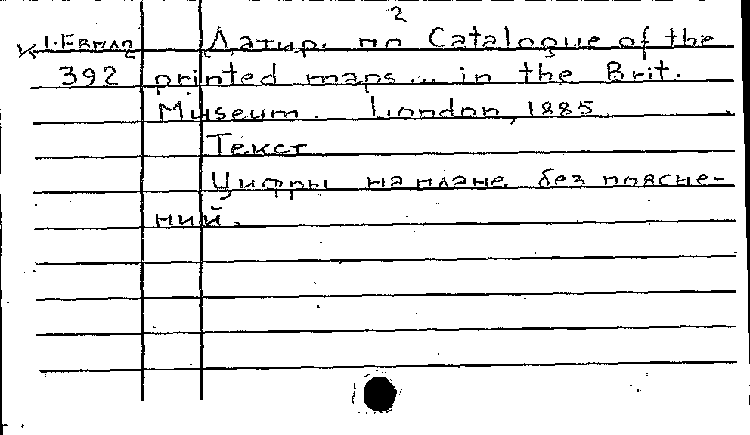 2
К 1-Евпл2 Датир. по Catalogue of the
392 printed maps... in the Brit.
Museum. London, 1885.
Текст
Цифры на плане без поясне-
ний.